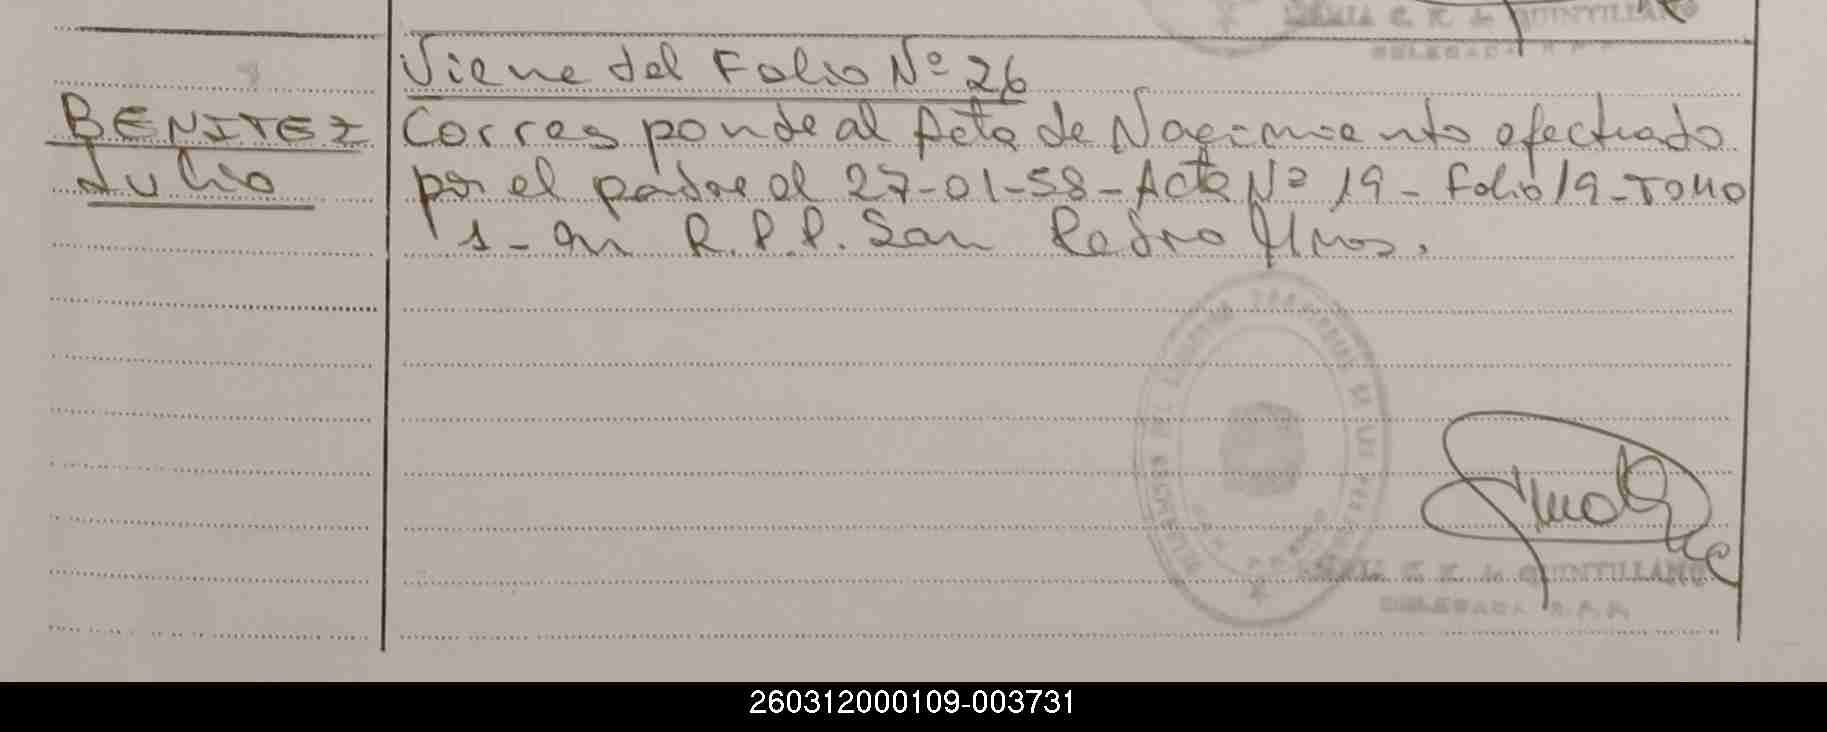 C. K. de QUINTILLANO
DELEGADA R.P.P.
Viene del Folio Nº 26
BENITEZ
Julio
Corresponde al Acta de Nacimiento efectuado
por el padre el 27-01-58-Acta Nº 19-Folio 19-TOMO
1-en R.P.P. San Pedro Mnes.
C. K. de QUINTILLANO
DELEGADA R.P.P.
260312000109-003731